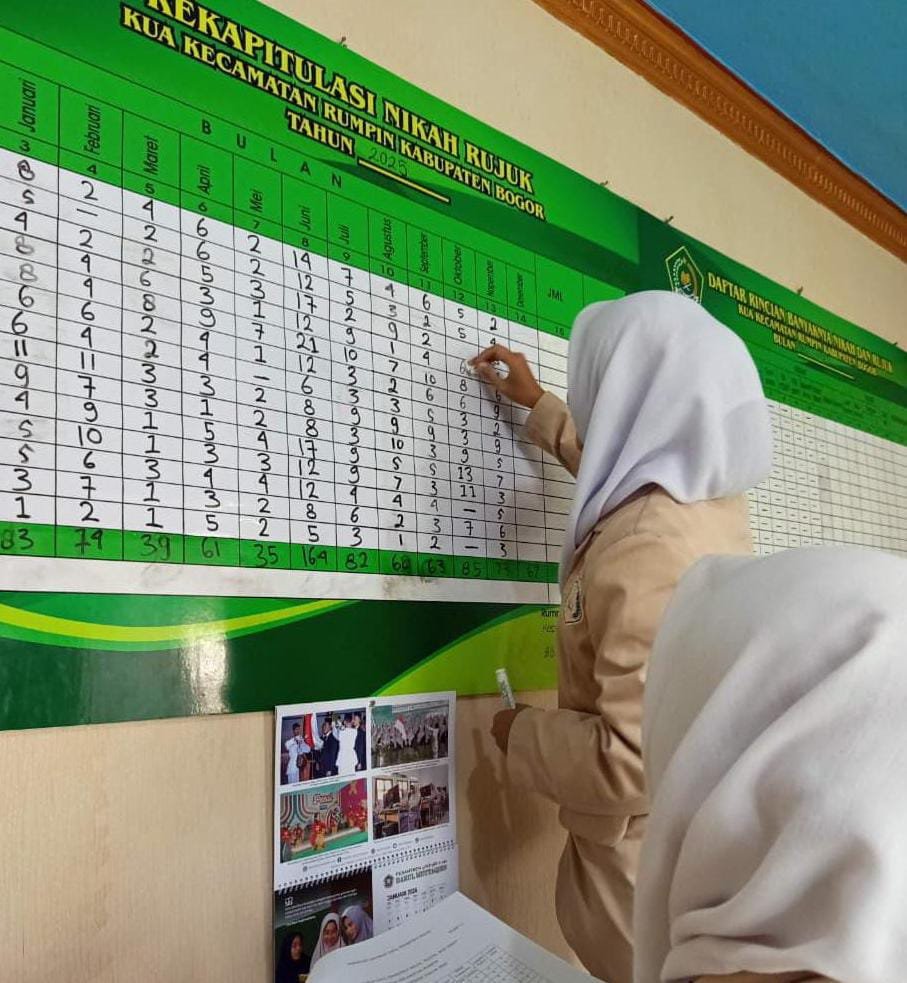 REKAPITULASI NIKAH RUJUK
KUA KECAMATAN RUMPIN KABUPATEN BOGOR
TAHUN 2025
BULAN
Januari Februari Maret April Mei Juni Juli Agustus September Oktober Nopember Desember JML
3 4 5 6 7 8 9 10 11 12 13 14 15
8 2 4 6 2 14 7 4 6 5 2
5 – 2 6 2 12 5 3 2 5
4 2 2 5 3 17 2 9 2
8 4 6 3 1 12 9 1 4 6
8 4 8 9 7 21 10 7 10 8 6
6 6 2 4 1 12 3 2 6 6 9
6 4 2 4 – 6 3 3 5 3 2
11 11 3 3 2 8 9 9 9 3 9
9 7 3 1 2 8 3 10 3 9 5
4 9 1 5 4 17 9 5 5 13 7
5 10 1 3 3 12 9 7 3 11 3
5 6 3 4 4 12 4 4 4 – 5
3 7 1 3 2 8 6 2 3 7 6
1 2 1 5 2 5 3 1 2 – 3
83 74 39 61 35 164 82 63 85
DAFTAR RINCIAN BANYAKNYA NIKAH DAN RUJUK
KUA KECAMATAN RUMPIN KABUPATEN BOGOR
BULAN
JANUARI